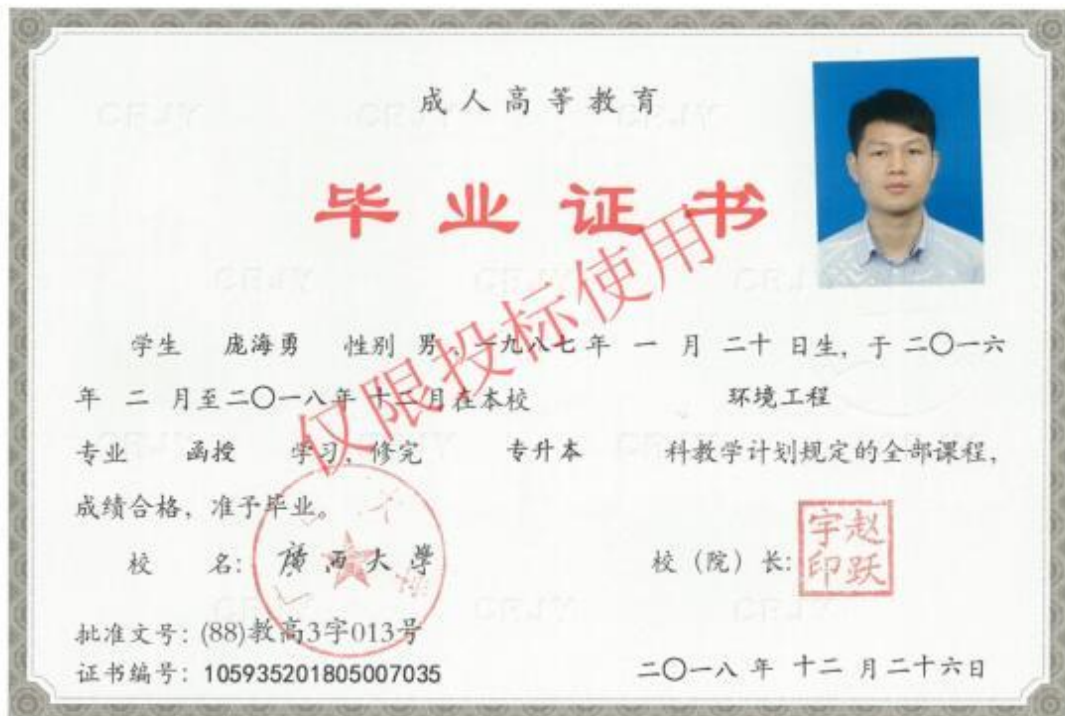 成人高等教育
毕业证书
仅限投标使用
学生 庞海勇 性别 男，一九八七年 一 月 二十 日生，于 二〇一六
年 二 月至二〇一八年 十二月在本校 环境工程
专业 函授 学习，修完 专升本 科教学计划规定的全部课程，
成绩合格，准予毕业。
校 名：廣西大學
校（院）长：
赵跃宇印
批准文号：(88)教高3字013号
证书编号：105935201805007035
二〇一八 年 十二 月二十六日